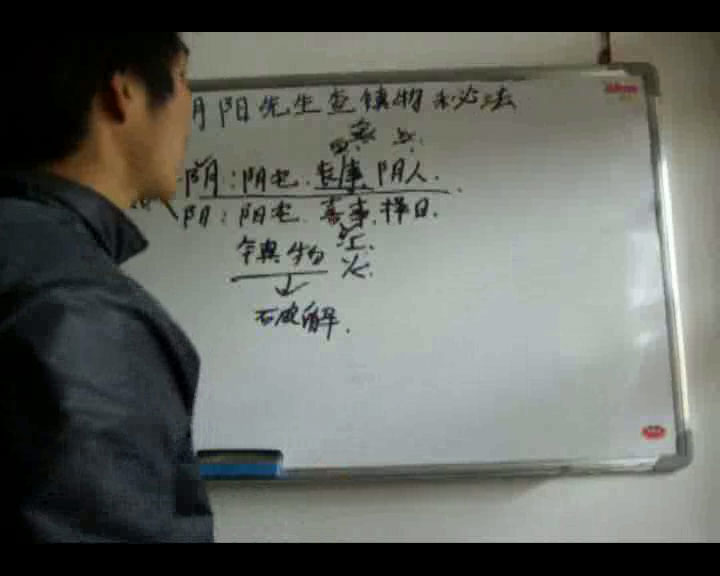 阴阳先生查镇物秘法
阴：阴宅.丧事.阴人.
阳：阳宅.喜事.择日.
镇物
破解.